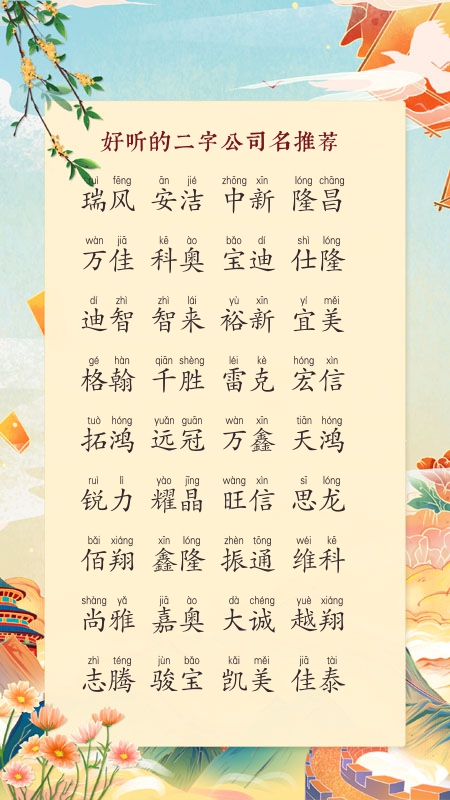 好听的二字公司名推荐
ruì fēng ān jié zhōng xīn lóng chāng
瑞风 安洁 中新 隆昌
wàn jiā kē ào bǎo dí shì lóng
万佳 科奥 宝迪 仕隆
dí zhì zhì lái yù xīn yí měi
迪智 智来 裕新 宜美
gé hàn qiān shèng léi kè hóng xìn
格翰 千胜 雷克 宏信
tuò hóng yuǎn guān wàn xīn tiān hóng
拓鸿 远冠 万鑫 天鸿
ruì lì yào jīng wàng xìn sī lóng
锐力 耀晶 旺信 思龙
bǎi xiáng xīn lóng zhèn tōng wéi kē
佰翔 鑫隆 振通 维科
shàng yǎ jiā ào dà chéng yuè xiáng
尚雅 嘉奥 大诚 越翔
zhì téng jùn bǎo kǎi měi jiā tài
志腾 骏宝 凯美 佳泰